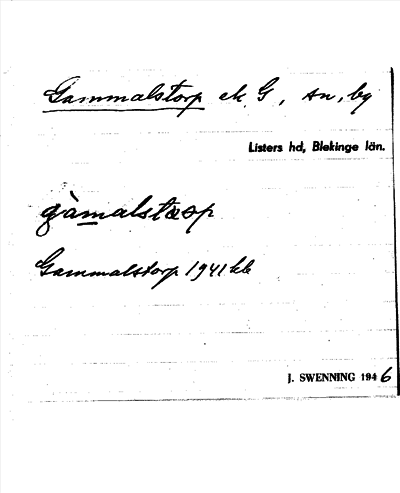 Gammalstorp ek. G, sn, by
Listers hd, Blekinge län.
Gammalstorp 1941
J. SWENNING 1946